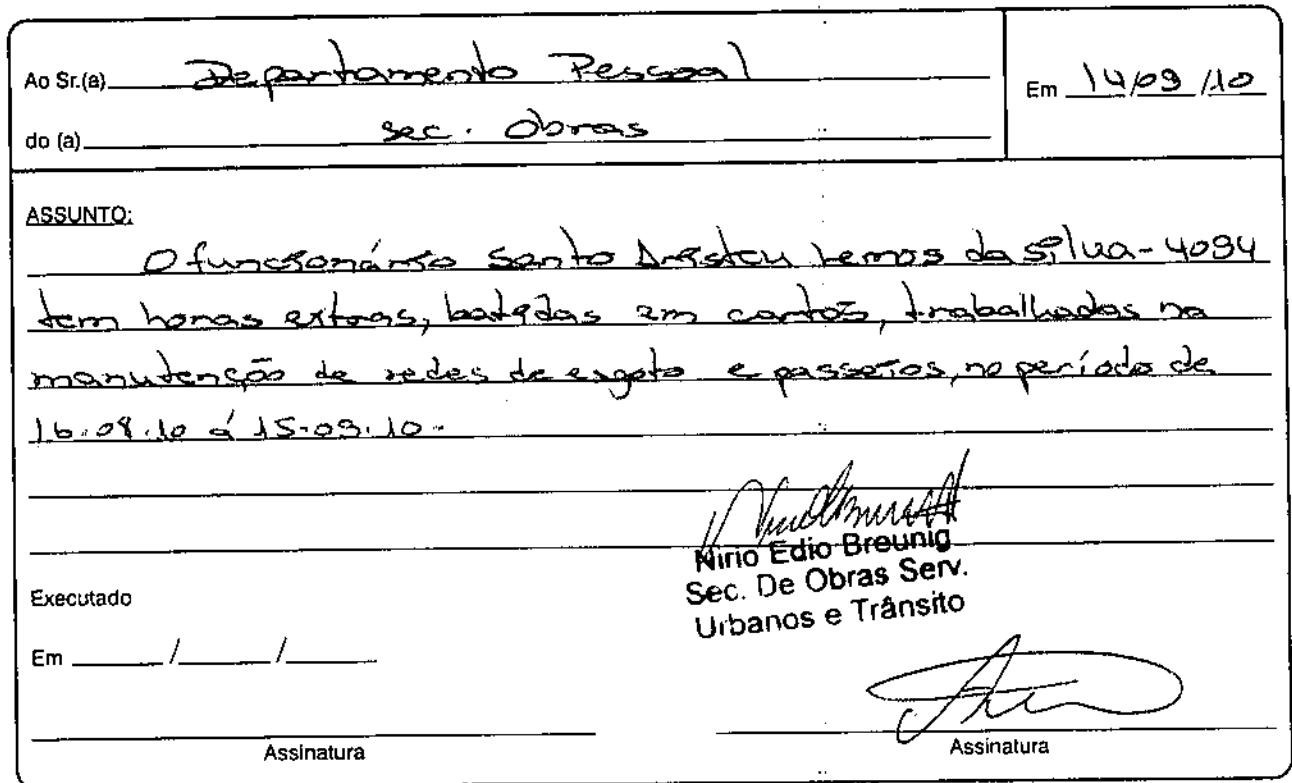 Ao Sr.(a) Departamento Pessoal
Em 14/09/10
do (a) sec. Obras
ASSUNTO:
O funcionário Santo Aristeu Lemos da Silva - 4094
tem horas extras, batidas em cartão, trabalhadas na
manutenção de redes de esgoto e passeios, no período de
16.08.10 á 15.09.10.
Nirio Edio Breunig
Sec. De Obras Serv.
Urbanos e Trânsito
Executado
Em ____/____/____
Assinatura
Assinatura